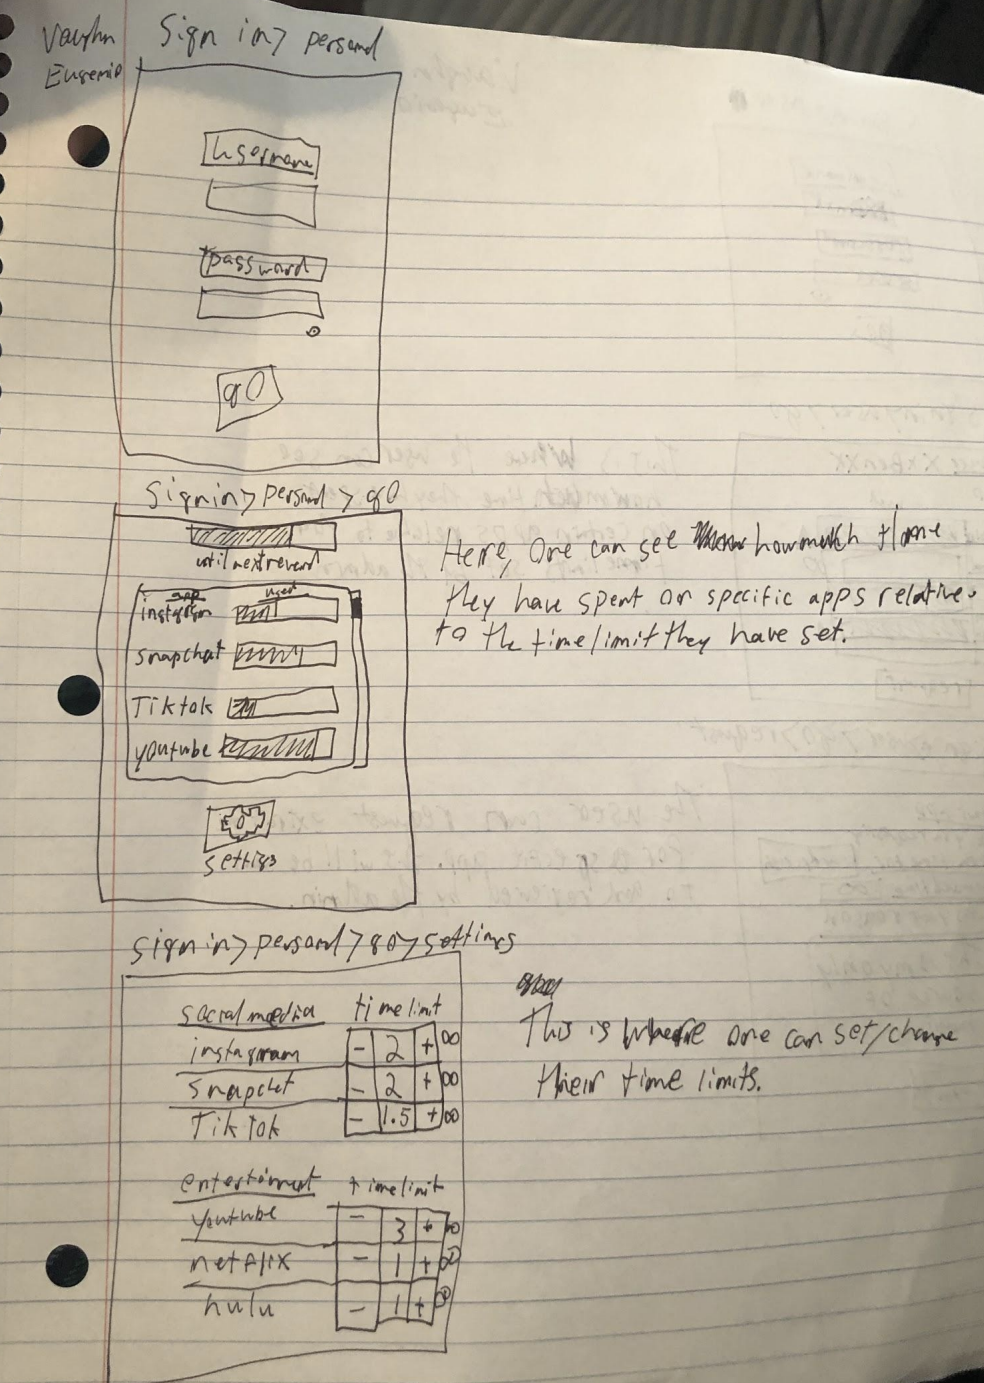 Vaughn
Eugenio
Sign in > personal
username
password
go
Sign in > personal > go
until next reward
app used
instagram
snapchat
Tiktok
youtube
settigs
Here, one can see how much time
they have spent on specific apps relative
to the time limit they have set.
sign in > personal > go > settings
social media time limit
instagram - 2 + ∞
snapchat - 2 + ∞
TikTok - 1.5 + ∞
entertainment time limit
youtube - 3 + ∞
netflix - 1 + ∞
hulu - 1 + ∞
This is where one can set/change
their time limits.